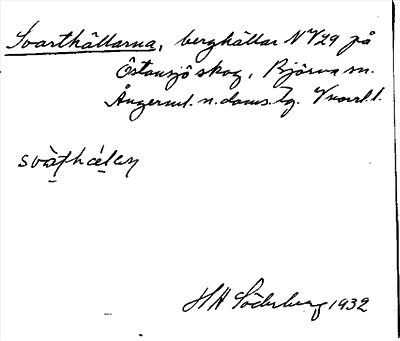 Svarthällarna, berghällar N V 29 på
Östansjö skog, Björna sn.
Ångerml. n. doms. tg. Vnorrl. l.
svàṭhálaṇ
H H Söderberg 1932